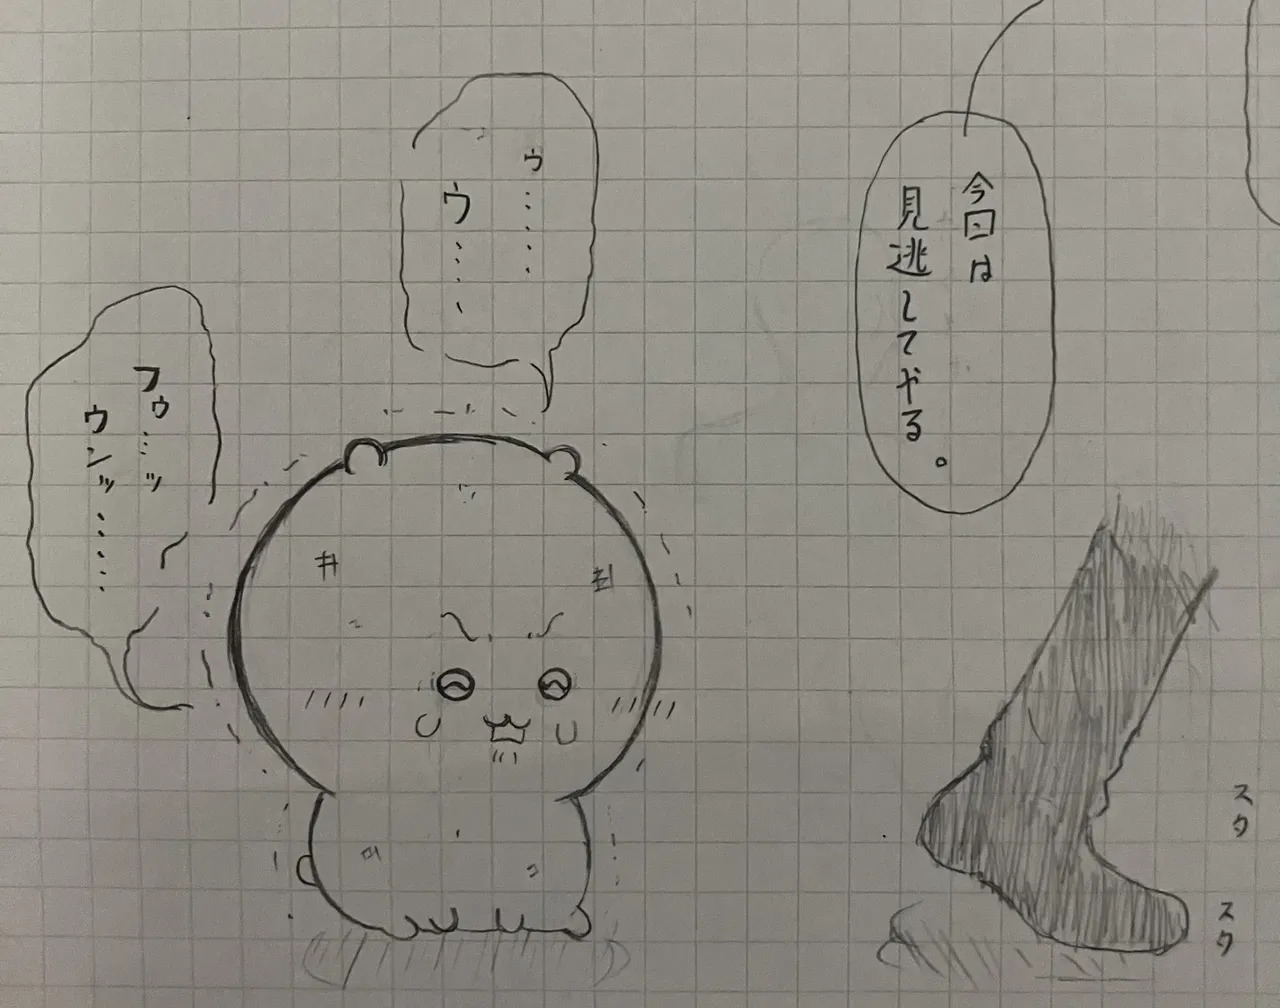 今回は
見逃してやる。
ウ‥‥‥
ウ‥‥‥
フゥ…ッ
ウンッ‥‥‥
スタ
スタ